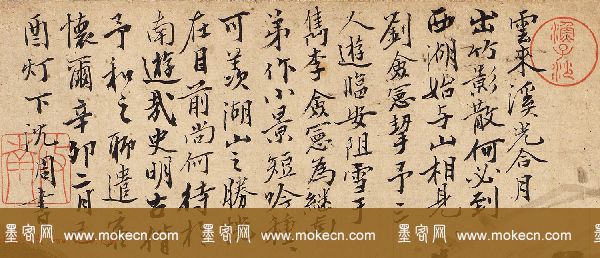 雲來溪光合月
出竹影散何必到
西湖始与山相見
劉僉憲挈予
人遊臨安阻雪于
雋李僉憲為継
弟作小景短吟
可羡湖山之勝
在目前尚何待
南遊哉史明古
予和之聊遣
懷爾辛卯二月
酉灯下沈周書
墨客网 www.mokecn.com 墨客网 www.mokecn.com 墨客网